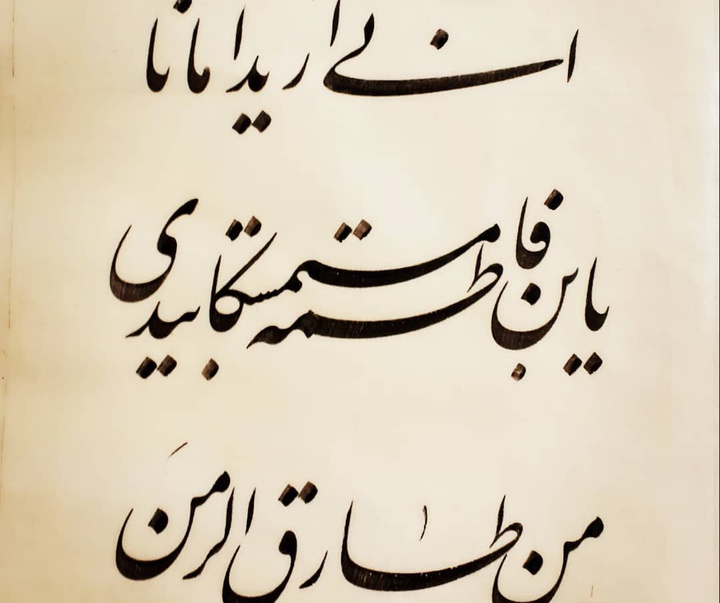 انی ارید امانا
یابن فاطمه مستمسکا بیدی
من طارق الزمن